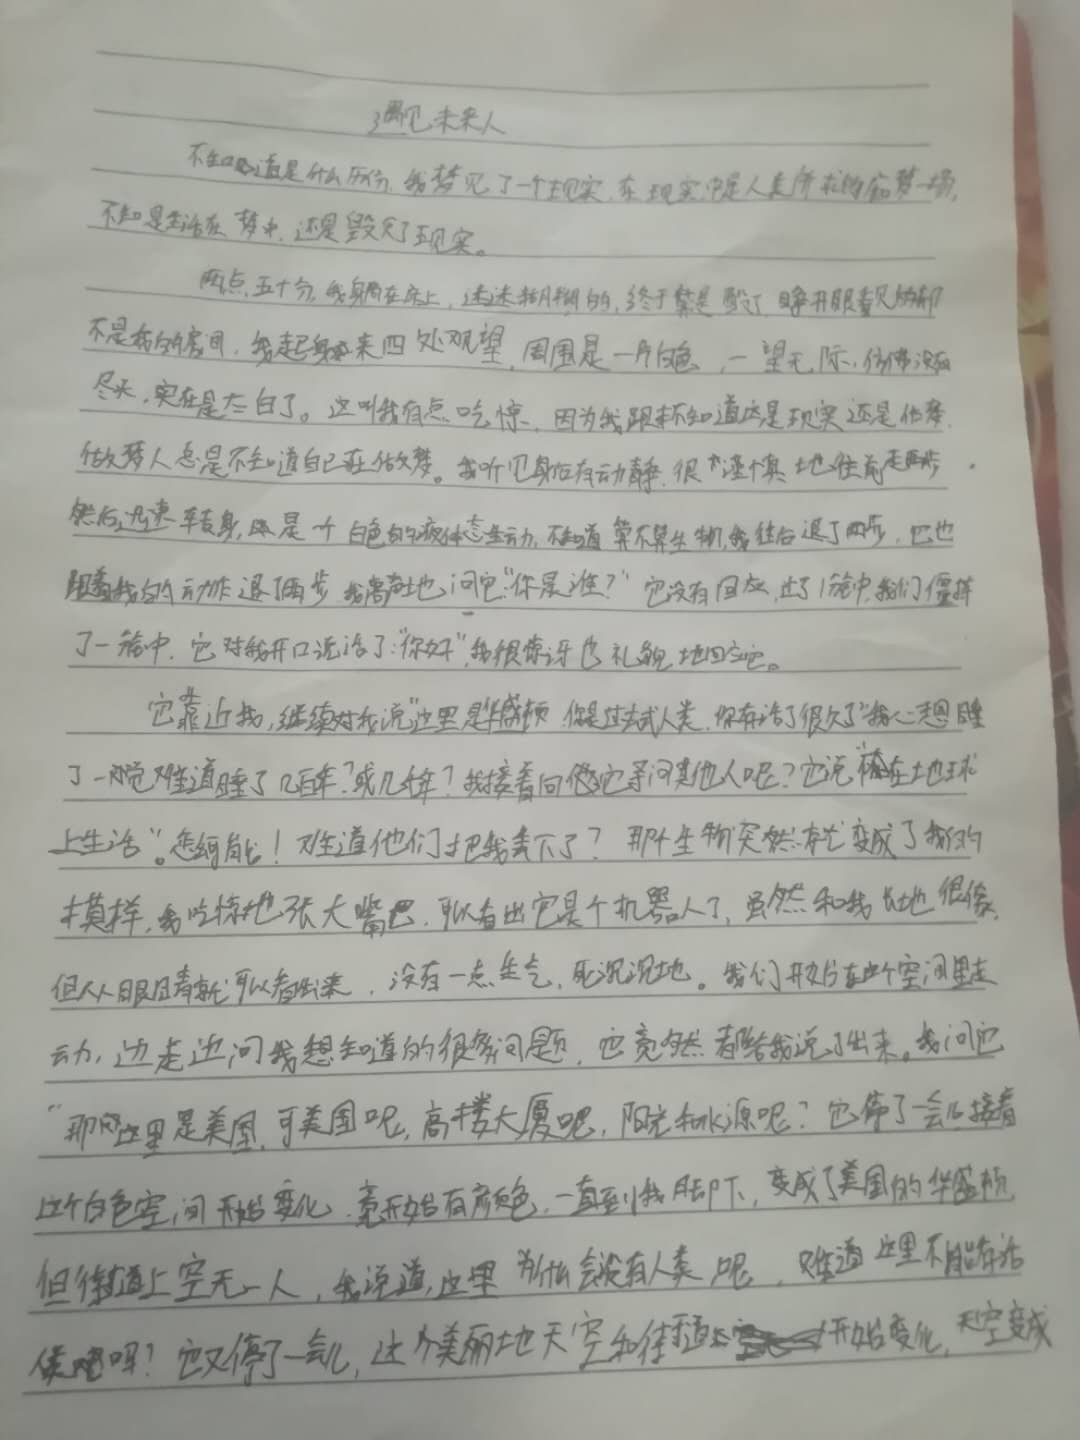 遇见未来人
不知道是什么历份,我梦见了一个现实,在现实中是人类所求的前梦一场,
不知是生活在梦中,还是毁灭了现实。
两点五十分,我躺在床上,迷迷糊糊的,终于禁是 了,睁开眼看见的都
不是我的房间,我起身来四处观望,周围是一片白色,一望无际,仿佛没有
尽头,实在是太白了。这叫我有点吃惊,因为我跟本不知道这是现实还是做梦,
做梦人总是不知道自己在做梦。我听见身后有动静,很谨慎地往前走两步,
然后迅速转身,既是一个白色的液体态生动,不知道算不算生物,我往后退了两步,它也
跟着我的动作退了两步,我离奇地问它:“你是谁?”它没有回应,过了1分钟,我们僵持
了一分钟,它对我开口说话了:“你好”,我很惊讶也礼貌地回应它。
它靠近我,继续对我说“这里是华盛顿,你是过去式人类,你存活了很久了”我心想睡
了一觉难道睡了几百年?或几千年?我接着问它等问其他人呢?它说“在地球
上生活”。怎么可能!难道他们把我丢下了?那个生物突然变成了我的
模样,我吃惊地张大嘴巴,可以看出它是个机器人了,虽然和我长地很像,
但从眼睛就可以看出来,没有一点生气,死沉沉地。我们开始在这个空间里走
动,边走边问我想知道的很多问题,它竟然都给我说了出来。我问它
“那问这里是美国,可美国呢,高楼大厦呢,阳光和水源呢?它停了一会儿接着
这个白色空间开始变化,竟开始有颜色,一直到我脚下,变成了美国的华盛顿
但街道上空无一人,我说道,这里为什么会没有人类呢,难道这里不能存活
吗?它又停了一会儿,这个美丽地天空和街道 开始变化,天空变成